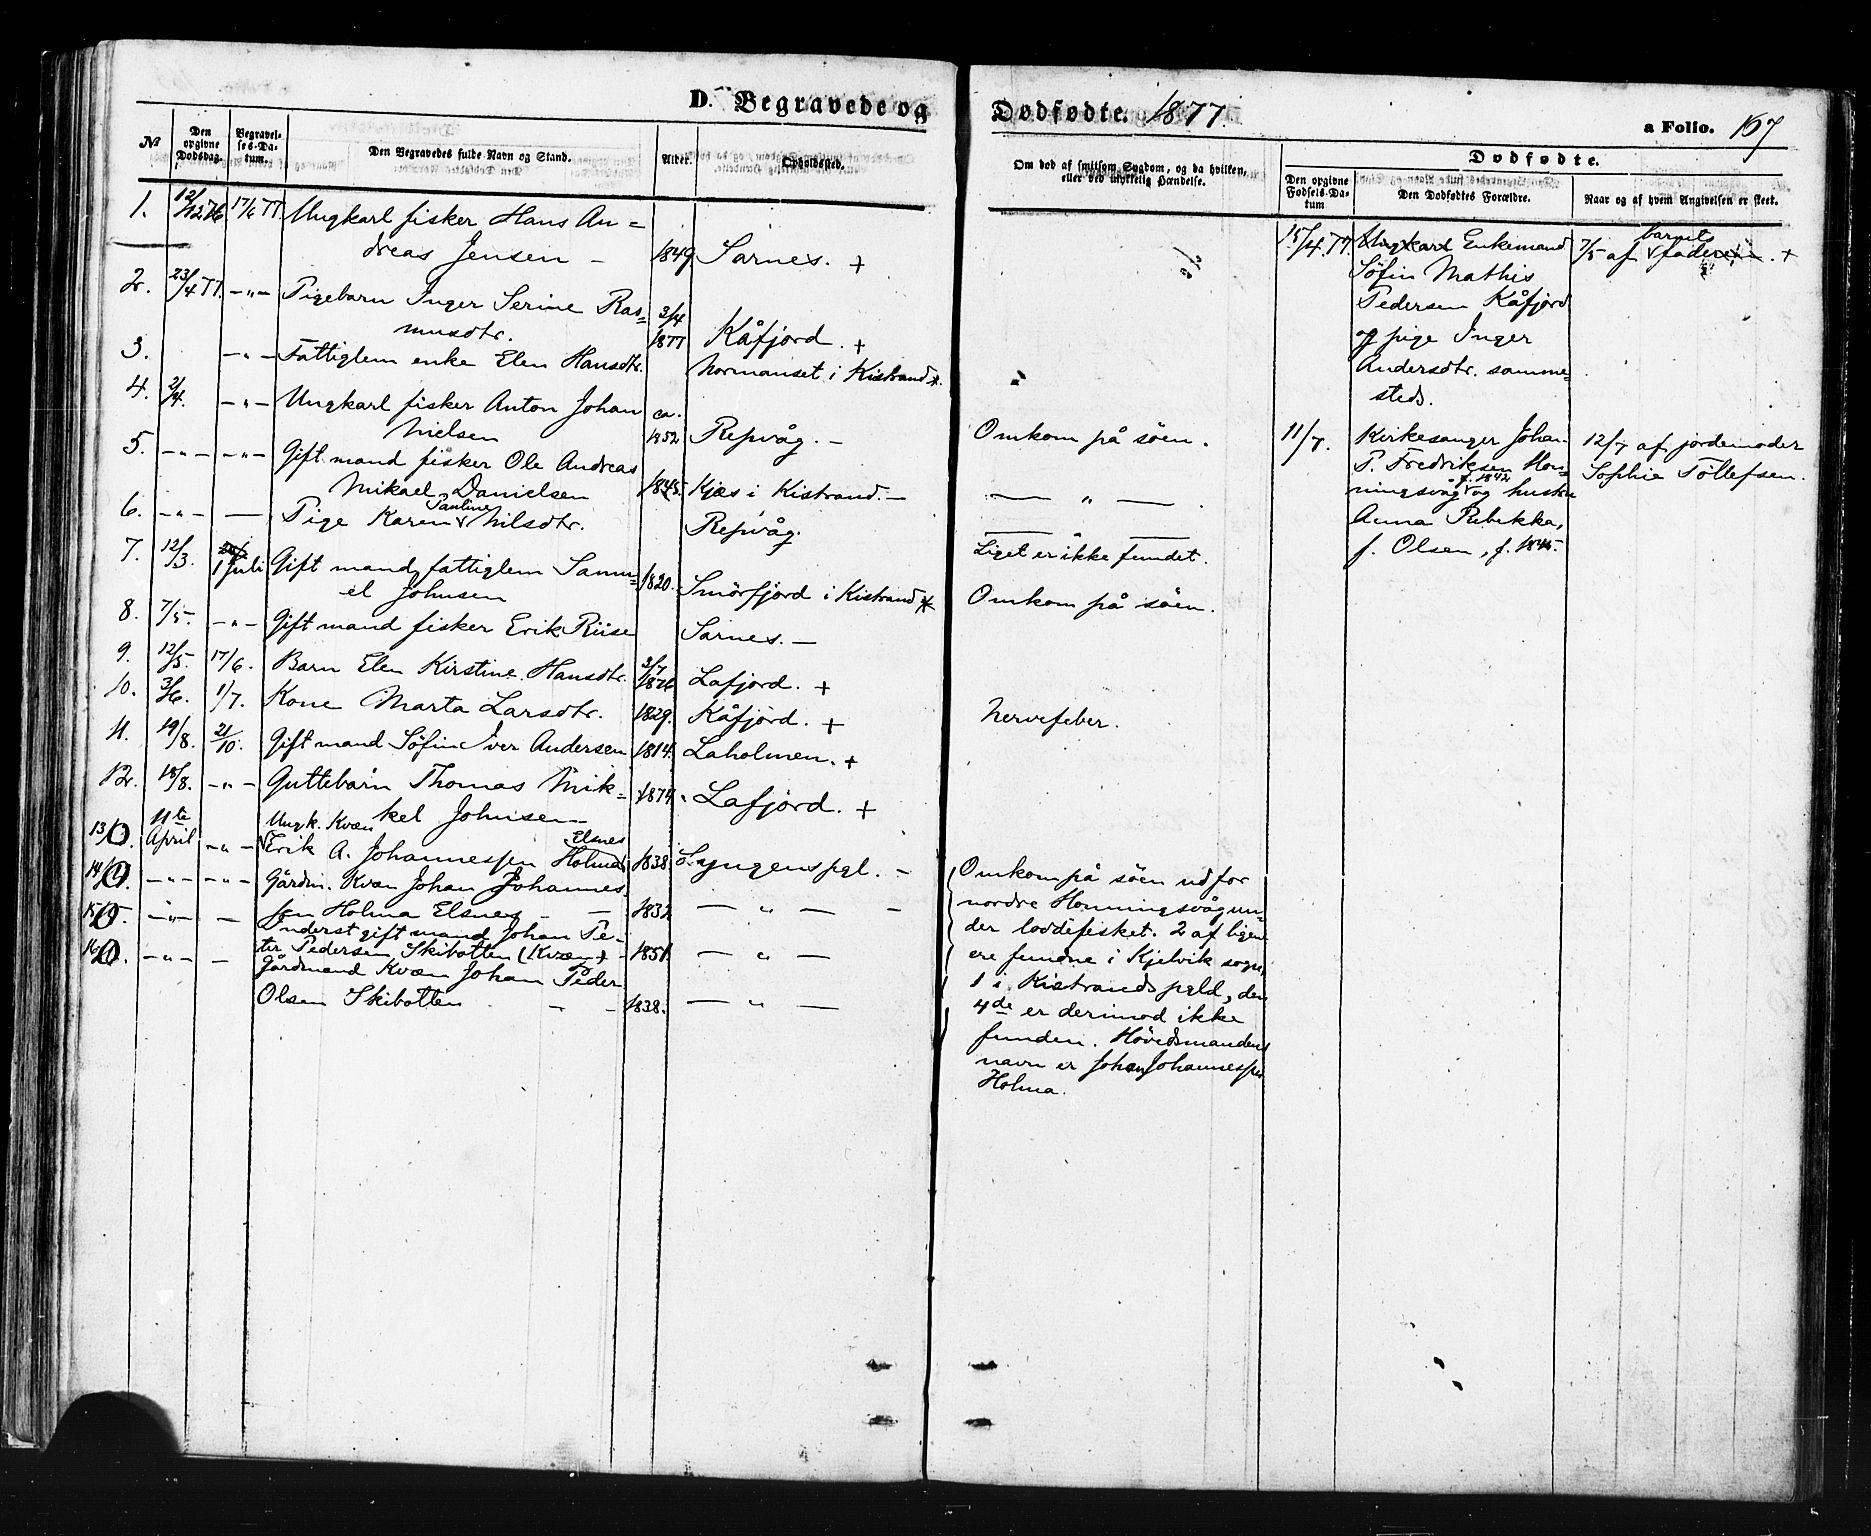 D. Begravede og Dødfødte. 1877. a Folio. 167
№ Den opgivne Dødsdag. Begravelses-Datum. Den Begravedes fulde Navn og Stand. Alder. Opholdssted.
1. 12/12 76 17/6 77 Ungkarl fisker Hans An=
dreas Jensen – 1849 Sarnes. +
2. 23/4 77. –"– Pigebarn Inger Serine Ras=
musdtr. 3/4 1877 Kåfjord. +
3. –"– Fattiglem enke Elen Hansdtr. Normanset i Kistrand *.
4. 2/4. –"– Ungkarl fisker Anton Johan
Nielsen ca. 1852 Repvåg. –
5. –"– –"– Gift mand fisker Ole Andreas
Mikael Danielsen 1845. Kjæs i Kistrand. –
6. –"– — Pige Karen Pauline Nilsdtr. Repvåg.
7. 12/3. 1 Juli Gift mand, fattiglem Samu=
el Johnsen 1820. Smörfjord i Kistrand *
8. 7/5. –"– Gift mand fisker Erik Riise Sarnes. –
9. 12/5. 17/6. Barn Elen Kirstine Hansdtr. 3/7 1876 Lafjord. +
10. 3/6. 1/7. Kone Marta Larsdtr. 1829. Kåfjord. +
11. 19/8. 21/10. Gift mand Söfin Iver Andersen 1814. Laholmen. +
12. 18/8. –"– Guttebarn Thomas Mik=
kel Johnsen – 1874. Lafjord. +
13. 11te April –"– Ungk. Kvæn
Erik A. Johannessen Holma Elsnes 1838. Lyngens pgl. –
14. –"– –"– Gårdm. Kvæn Johan Johannes
sen Holma Elsnes – – 1832 — " — –
15. –"– – Inderst gift mand Johan Pe-
ter Pedersen Skibotten (Kvæn) – 1851. — " —
16. –"– – Gårdmand Kvæn Johan Peder
Olsen Skibotten – – 1838. — " —
Om død af smitsom Sygdom, og da hvilken,
eller ved ulykkelig Hændelse.
Omkom på söen.
— " —
Liget er ikke fundet.
Omkom på söen.
Nervefeber.
Omkom på söen udfor
nordre Honningsvåg un-
der loddefisket. 2 af ligene
ere fundne i Kjelvik sogn,
1 i Kistrands pgld, den
4de er derimod ikke
funden. Hövedsmandens
navn er Johan Johannessen
Holma.
Dødfødte.
Den opgivne Fødsels-Datum Den Dødfødtes Forældre. Naar og af hvem Angivelsen er skeet.
15/4 77. Ungkarl Enkemand 7/5 af barnets faderen. +
Söfin Mathis
Pedersen Kåfjord
og pige Inger
Andersdtr. samme=
steds.
11/7. Kirkesanger Johan 12/7 af jordemoder
P. Fredriksen Hon- Sophie Tollefsen.
ningsvåg f. 1842 og hustru
Anna Rebekka,
f. Olsen, f. 1845.